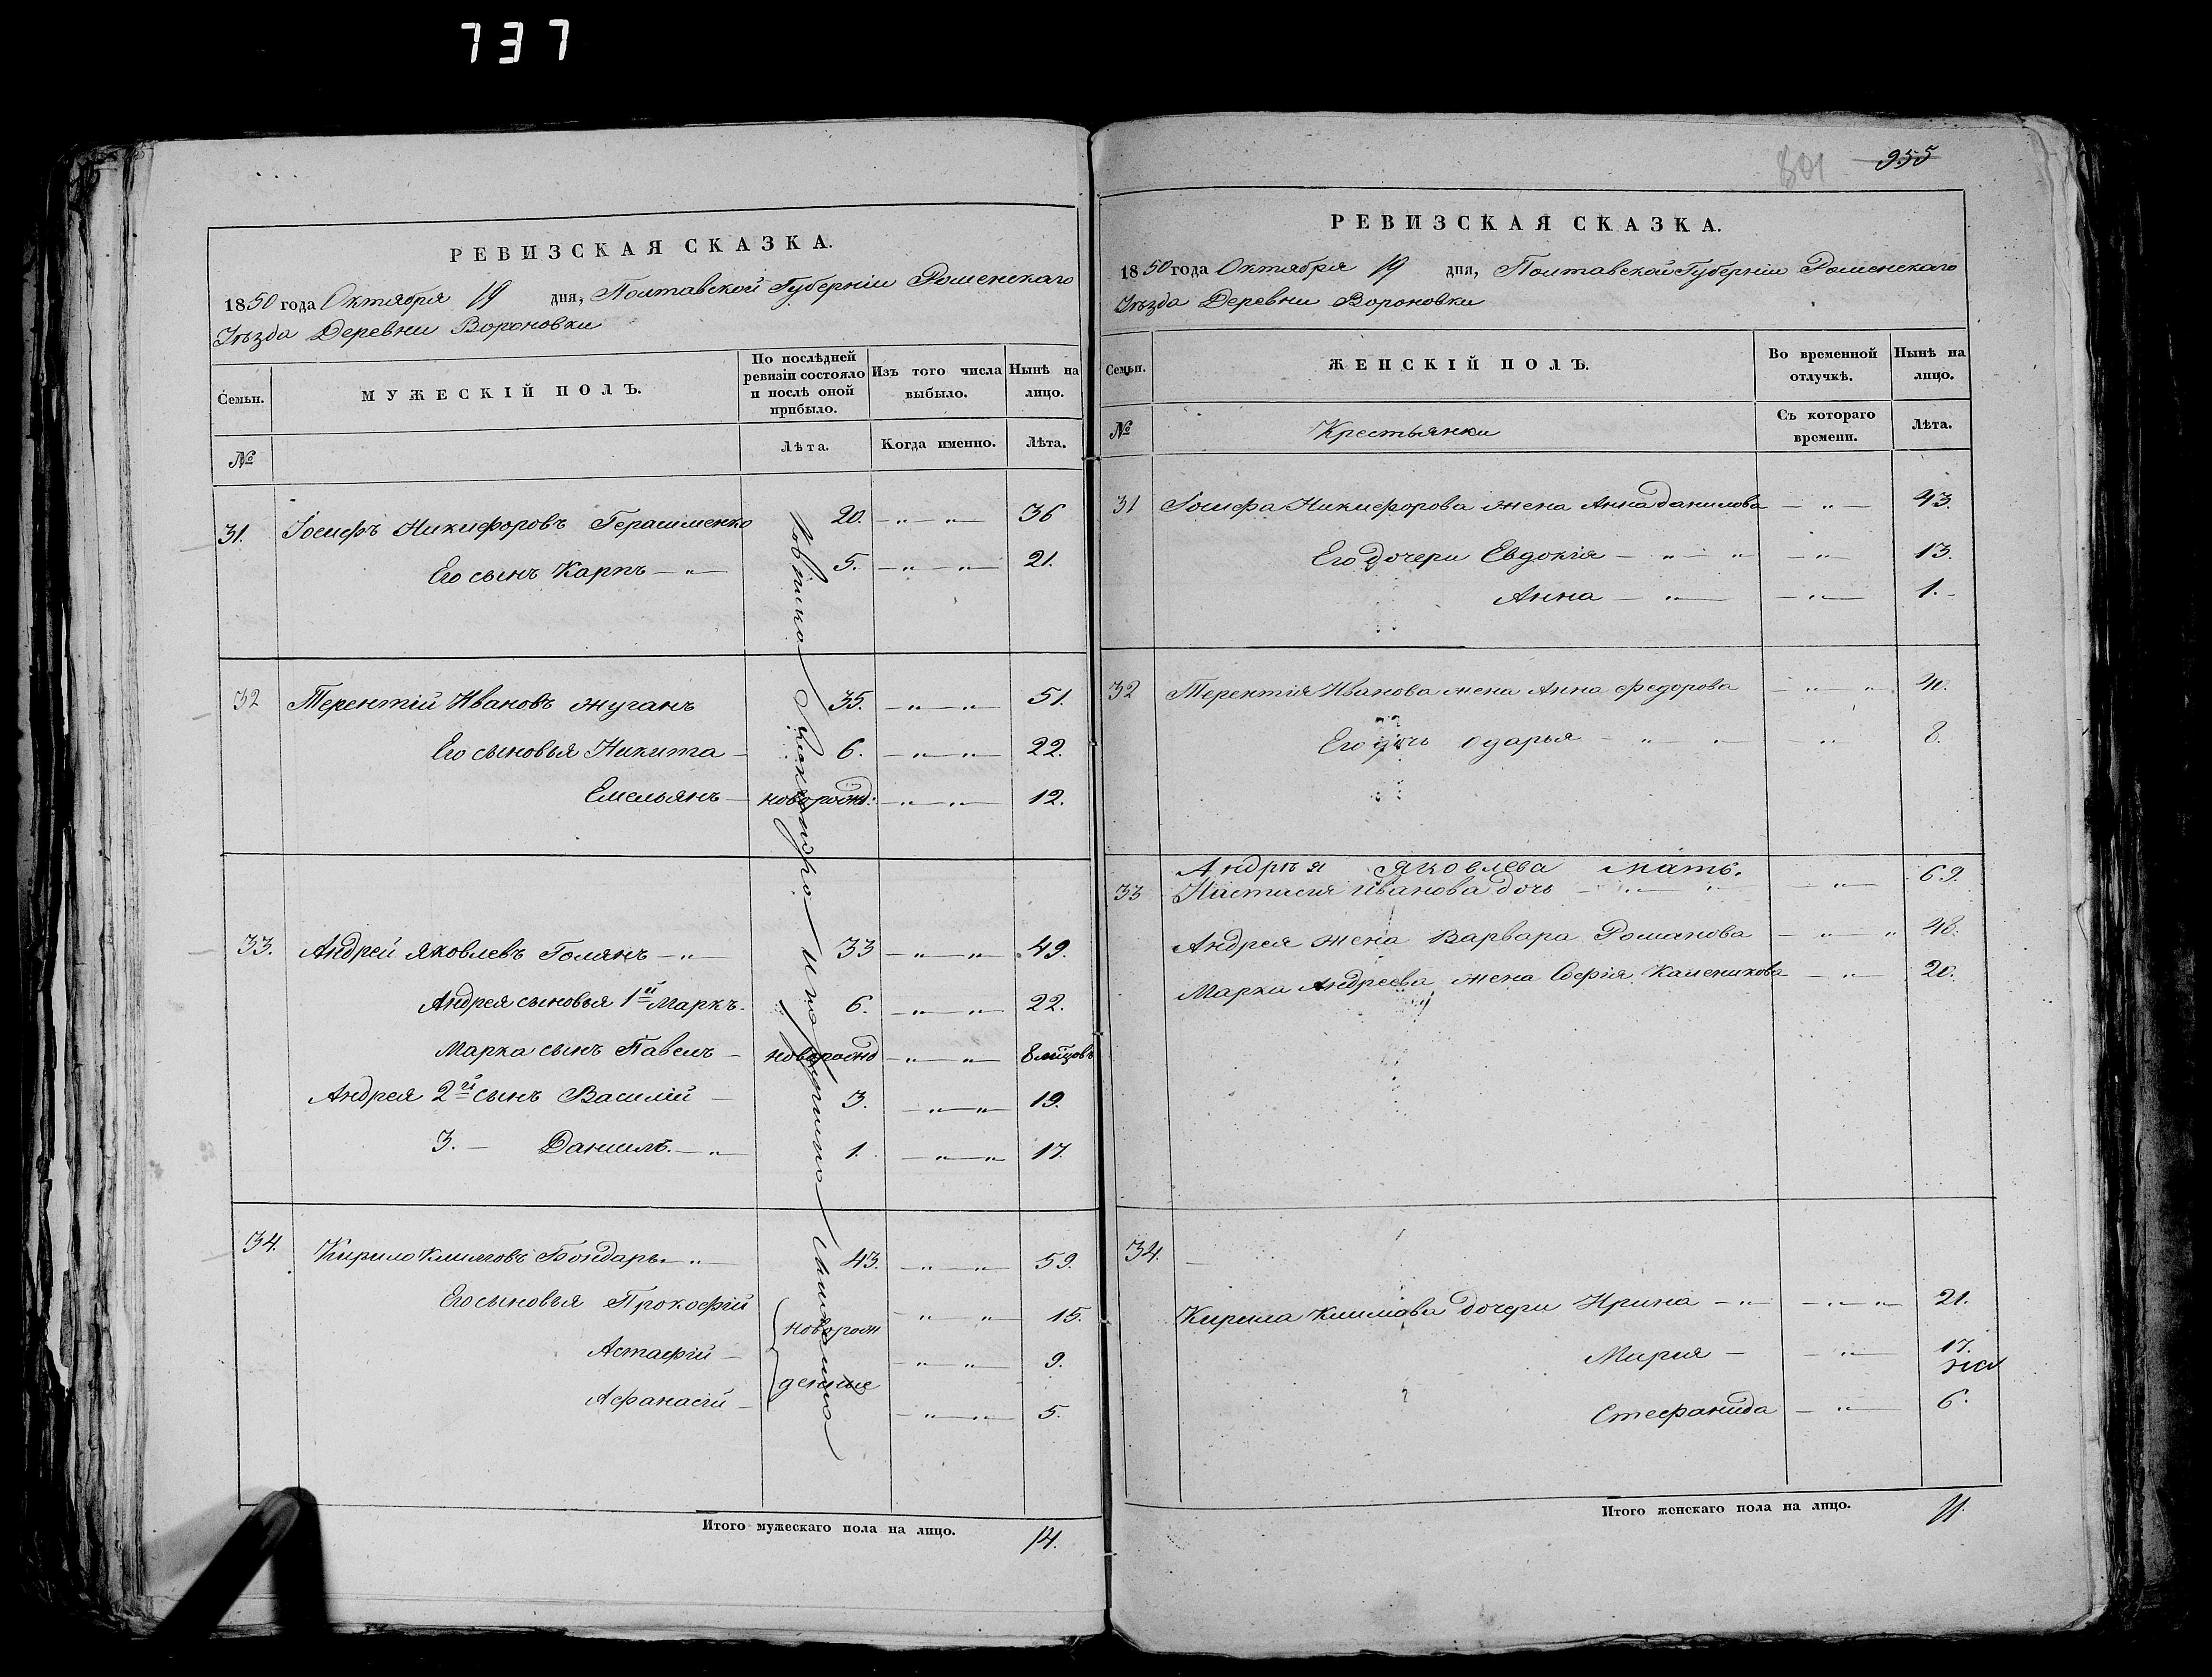 737
РЕВИЗСКАЯ СКАЗКА.
1850 года Октября 19 дня, Полтавской Губерніи Роменскаго
Уѣзда Деревни Вороновки
Семьи.
МУЖЕСКІЙ ПОЛЪ.
По послѣдней ревизіи состояло и послѣ оной прибыло.
Изъ того числа выбыло.
Нынѣ на лицо.
№
Лѣта.
Когда именно.
Лѣта.
31. Іосифъ Никифоровъ Герашменко 20. — „ — „ — 36
Его сынъ Карпъ — „ — 5. — „ — „ — 21.
32 Терентій Ивановъ Жуганъ 35. — „ — „ — 51.
Его сыновья Никита — 6. — „ — „ — 22.
Емельянъ — новорожд: — „ — „ — 12.
33. Андрей Яковлевъ Голянъ — „ — 33 — „ — „ — 49.
Андрея сыновья 1й Маркъ. 6. — „ — „ — 22.
Марка сынъ Павелъ — новорожд — „ — „ — 8 мцовъ
Андрея 2й сынъ Василій — 3. — „ — „ — 19.
3. — Даниилъ. — „ — 1. — „ — „ — 17.
34. Кирило Климовъ Бондарь — „ — 43. — „ — „ — 59.
Его сыновья Прокофій новорож — „ — „ — 15.
Астафій — — „ — „ — 9.
Афанасій — денные — „ — „ — 5.
Итого мужескаго пола на лицо. 14.
801 955
РЕВИЗСКАЯ СКАЗКА.
1850 года Октября 19 дня, Полтавской Губерніи Роменскаго
Уѣзда Деревни Вороновки
Семьи.
ЖЕНСКІЙ ПОЛЪ.
Во временной отлучкѣ.
Нынѣ на лицо.
№
Крестьянки
Съ котораго времени.
Лѣта.
31 Іосифа Никифорова жена Анна Данилова — „ — 43.
Его дочери Евдокія — „ — „ — „ — 13.
Анна — „ — — „ — 1.
32 Терентія Иванова жена Анна Федорова — „ „
Его дочь Одарья — „ — „ — „ 8.
Андрѣя Яковлева мать.
33 Настасія Иванова дочь — „ — „ — „ — 69.
Андрея жена Варвара Романова — „ — „ 48.
Марка Андреева жена Софія — „ — 20.
34.
Кирила Климова дочери Ирина — „ — — „ — „ 21.
Марія — — „ — 17.
Стефанида — „ — 6.
Итого женскаго пола на лицо. 11.